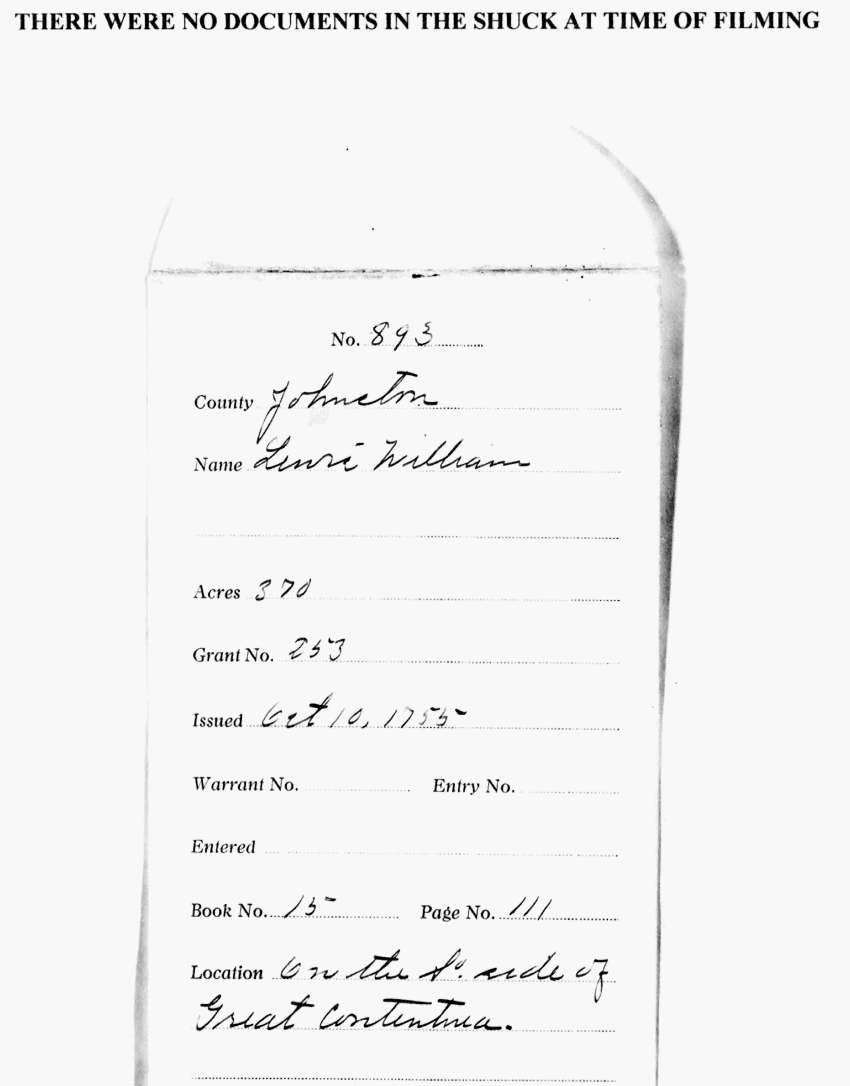 THERE WERE NO DOCUMENTS IN THE SHUCK AT TIME OF FILMING
No. 893
County Johnston
Name Lewis William
Acres 370
Grant No. 253
Issued Oct 10, 1755
Warrant No. Entry No.
Entered
Book No. 15 Page No. 111
Location On the So. side of
Great Contentnea.